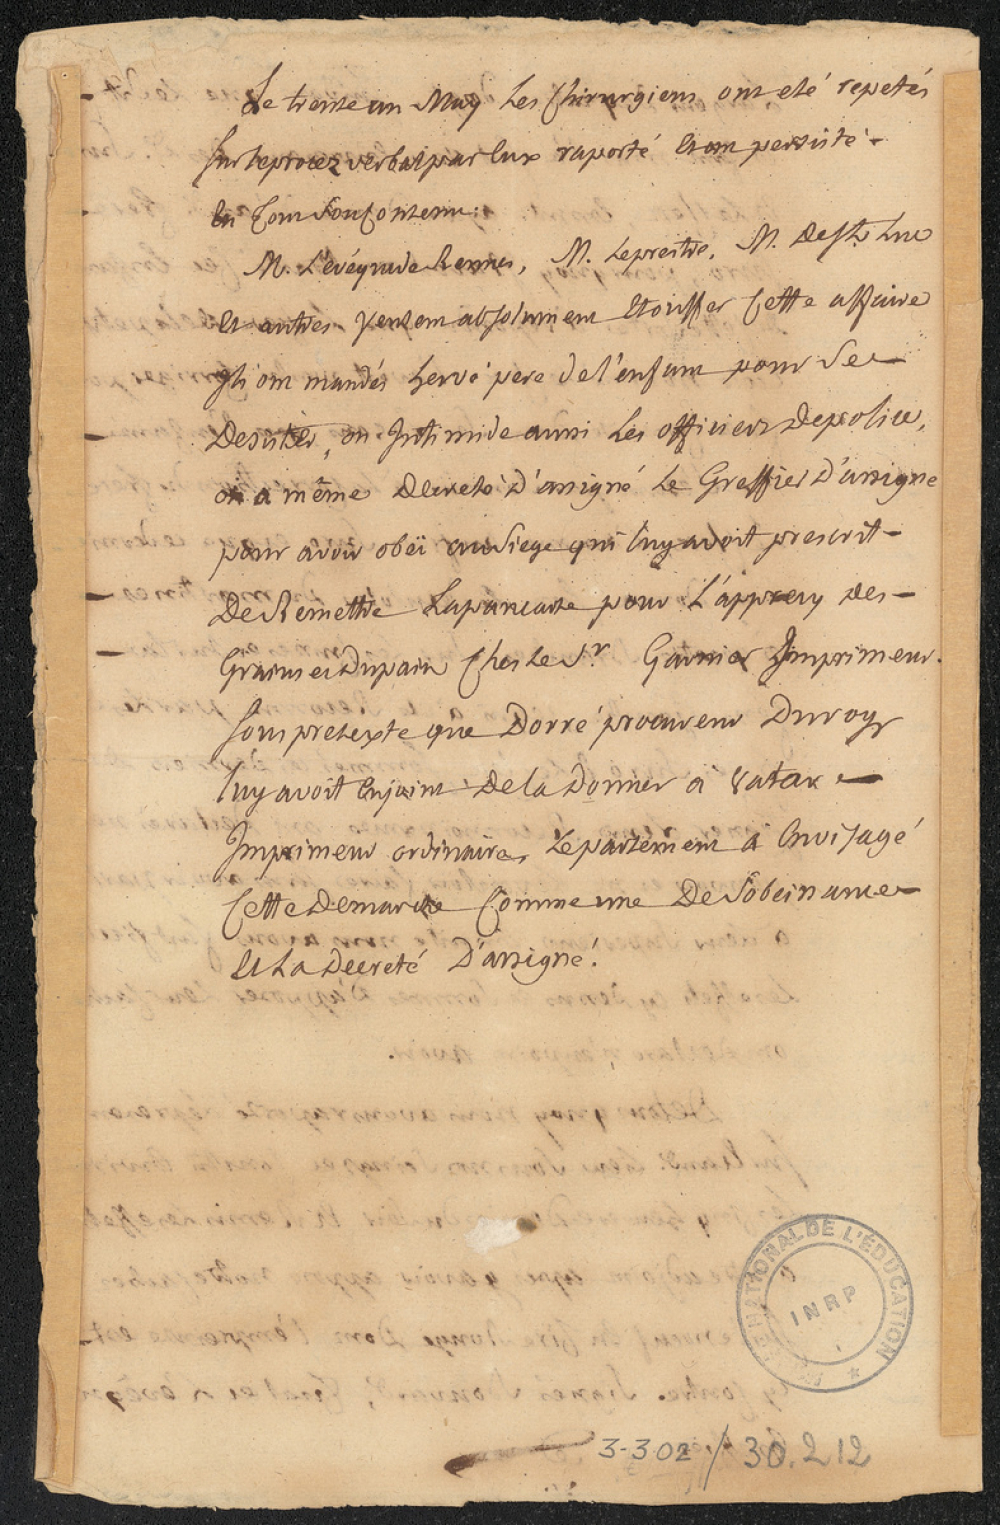 Le trente un May Les Chirurgiens ont eté repetés
sur le procez verbal par Eux raporté Et ont persisté -
En tout son contenu:
M. L'evéque de Rennes, M. Leprestre, M. De St Luc
Et autres Veulent absolument Etouffer Cette affaire
Ils ont mandés hervé pere de l'enfant pour Se -
Desister, on Intimide aussi Les officiers De police,
on a même Decreté D'assigné Le Greffier D'assigne
pour avoir obëi au Siege qui luy avoit prescrit -
De Remettre La pancarte pour L'apprecy des -
Grains et Du pain Chez Le Sr Garnier Imprimeur.
sous pretexte que Dorré procureur Du roy
luy avoit Enjoint De la Donner a Vatar -
Imprimeur ordinaire, Le parlement a Envisagé
Cette Demarche Comme une Desobeissance -
Et La Decreté D'assigné.
MUSÉE NATIONAL DE L'ÉDUCATION
INRP
3-302 / 30.212